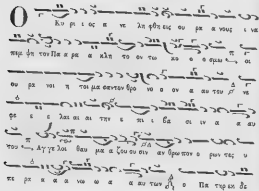 Ο Κυ ρι ος α νε λη φθη εις ου ρα νους ι να
πεμ ψη τον Πα ρα α κλη το εν τω κο ο σμω οι
ου ρα νοι η τοι μα σαν τον θρο νο ο ον αυ του νε
φε ε λαι αι αι την ε πι ι βα σι ιν α α αυ
του Αγ γε λοι θαυ μα α ζου ου σιν αν θρω πον ο ρων τες υ
πε ρα α α α νω ω α α αυ των ο Πα τηρ εκ δε